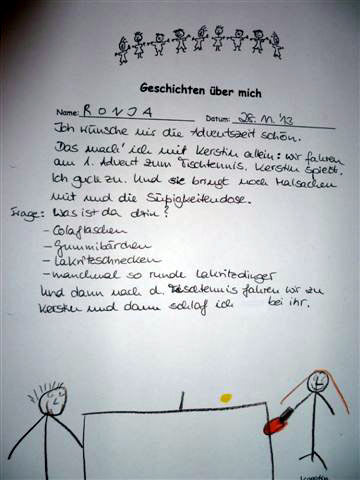 Geschichten über mich
Name: RONJA Datum: 28.11.'13
Ich wünsche mir die Adventszeit schön.
Das mach' ich mit Kerstin allein: wir fahren
am 1. Advent zum Tischtennis. Kerstin spielt.
Ich guck zu. Und sie bringt noch Malsachen
mit und die Süßigkeitendose.
Frage: Was ist da drin?
- Colaflaschen
- Gummibärchen
- Lakritzschnecken
- manchmal so runde Lakritzdinger
Und dann nach d. Tischtennis fahren wir zu
Kerstin und dann schlaf ich bei ihr.